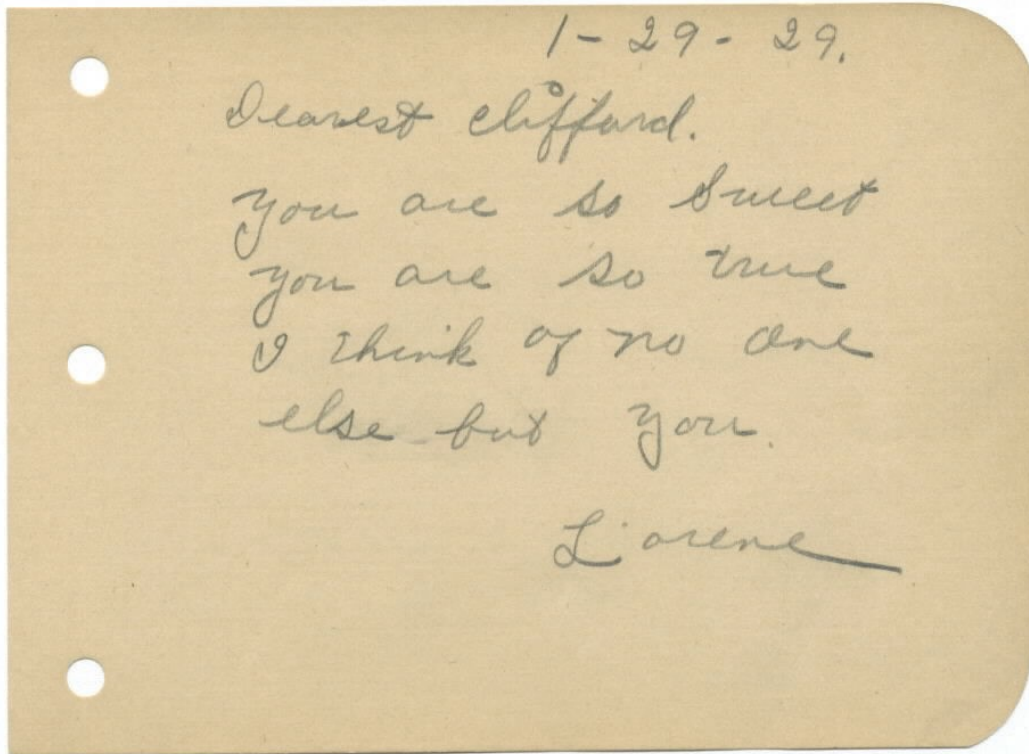 1-29-29.
Dearest Clifford.
You are so Sweet
you are so true
I think of no one
else but you.
Lorene